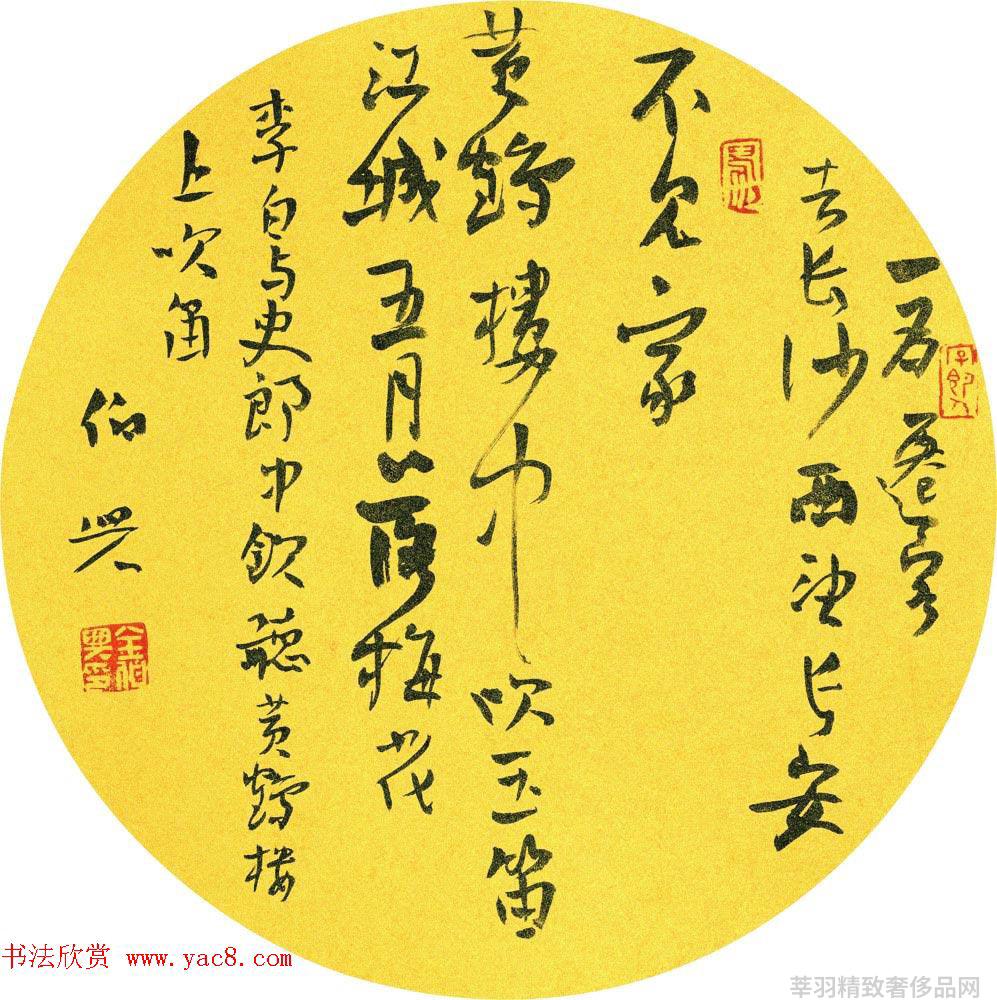 一为遷客
去长沙西望长安
不见家
黄鶴樓中吹玉笛
江城五月落梅花
李白与史郎中欽聽黄鶴樓
上吹笛
伯兴
金伯興印
书法欣赏 www.yac8.com
莘羽精致奢侈品网